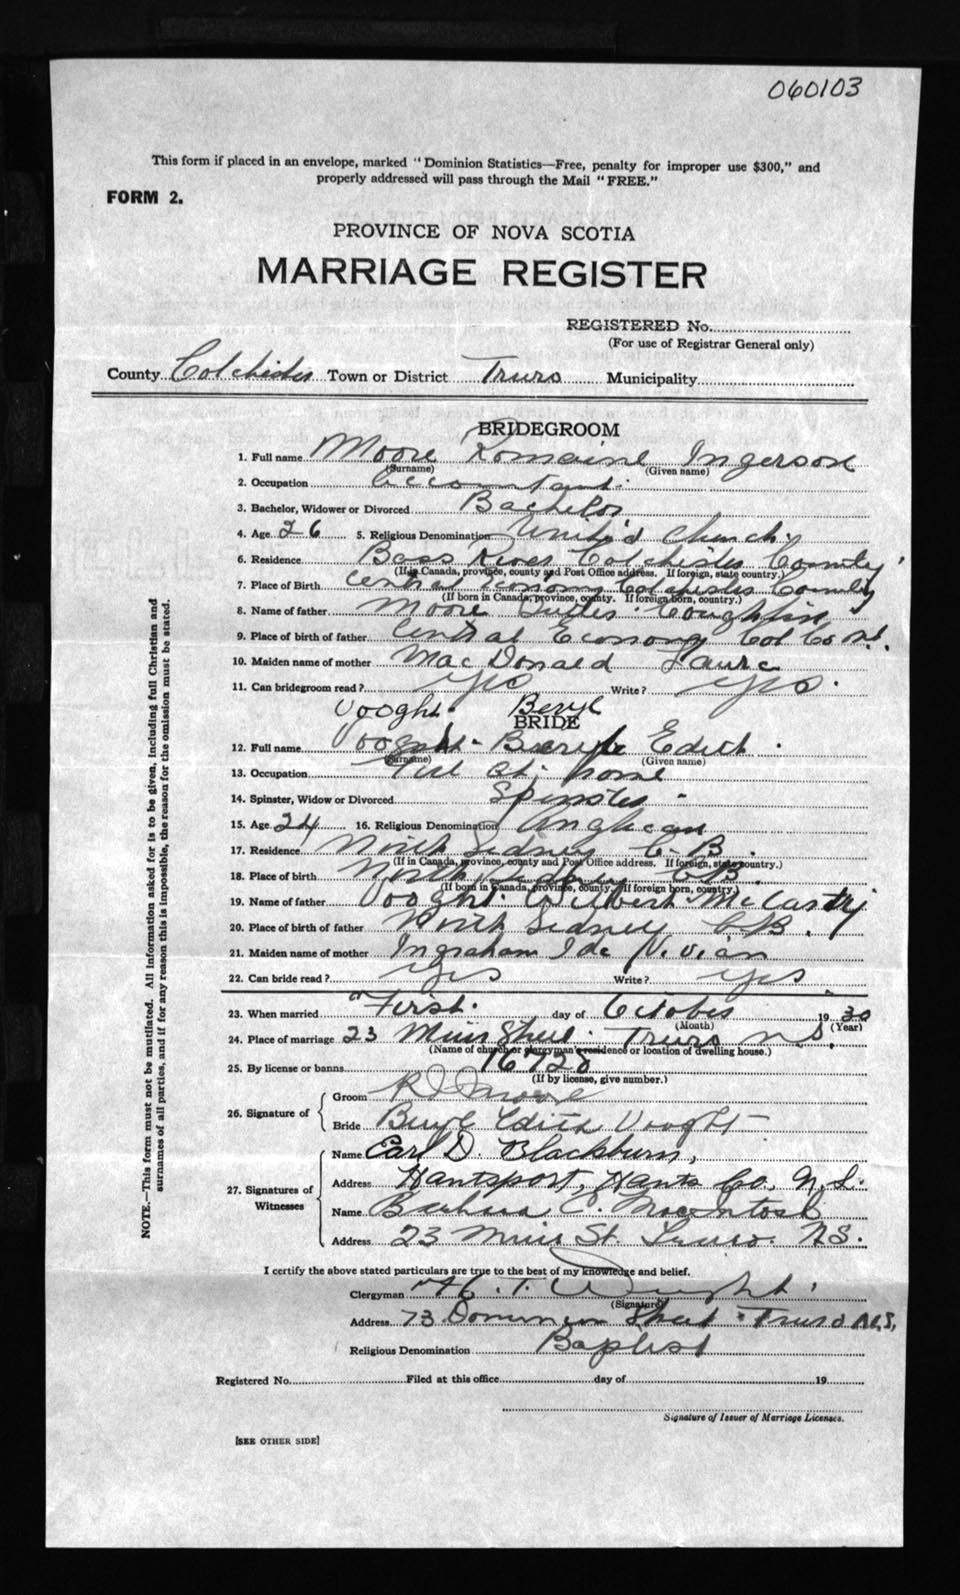 060103
This form if placed in an envelope, marked "Dominion Statistics—Free, penalty for improper use $300," and
properly addressed will pass through the Mail "FREE."
FORM 2.
PROVINCE OF NOVA SCOTIA
MARRIAGE REGISTER
REGISTERED No.
(For use of Registrar General only)
County Colchester Town or District Truro Municipality
BRIDEGROOM
1. Full name Moore Romaine Ingerson
(Surname) (Given name)
2. Occupation Accountant
3. Bachelor, Widower or Divorced Bachelor
4. Age 26 5. Religious Denomination United Church
6. Residence Bass River Colchester County
(If in Canada, province, county and Post Office address. If foreign, state country.)
7. Place of Birth Central Economy Colchester County
(If born in Canada, province, county. If foreign born, country.)
8. Name of father Moore Coughlin
9. Place of birth of father Central Economy Col Co N.S.
10. Maiden name of mother MacDonald Laura
11. Can bridegroom read? Yes Write? Yes.
Vooght Beryl
BRIDE
12. Full name Vooght Beryl Edith
(Surname) (Given name)
13. Occupation at home
14. Spinster, Widow or Divorced Spinster
15. Age 24 16. Religious Denomination Anglican
17. Residence North Sidney C.B.
(If in Canada, province, county and Post Office address. If foreign, state country.)
18. Place of birth North Sidney C.B.
(If born in Canada, province, county. If foreign born, country.)
19. Name of father Vooght Wilbert McCarty
20. Place of birth of father North Sidney C.B.
21. Maiden name of mother Ingraham Ida Vivian
22. Can bride read? Yes Write? Yes
23. When married First day of October 1930
(Month) (Year)
24. Place of marriage 23 Muir Street Truro N.S.
(Name of church or clergyman's residence or location of dwelling house.)
25. By license or banns 16728
(If by license, give number.)
26. Signature of
Groom R I Moore
Bride Beryl Edith Vooght
27. Signatures of Witnesses
Name Earl D. Blackburn,
Address Hantsport, Hants Co. N.S.
Name Barbara C. Macintosh
Address 23 Muir St. Truro. N.S.
I certify the above stated particulars are true to the best of my knowledge and belief.
Clergyman T. Wright
(Signature)
Address 73 Dominion Street Truro N.S.
Religious Denomination Baptist
Registered No. Filed at this office day of 19
Signature of Issuer of Marriage Licenses.
[SEE OTHER SIDE]
NOTE.—This form must not be mutilated. All information asked for is to be given, including full Christian and
surnames of all parties, and if for any reason this is impossible, the reason for the omission must be stated.